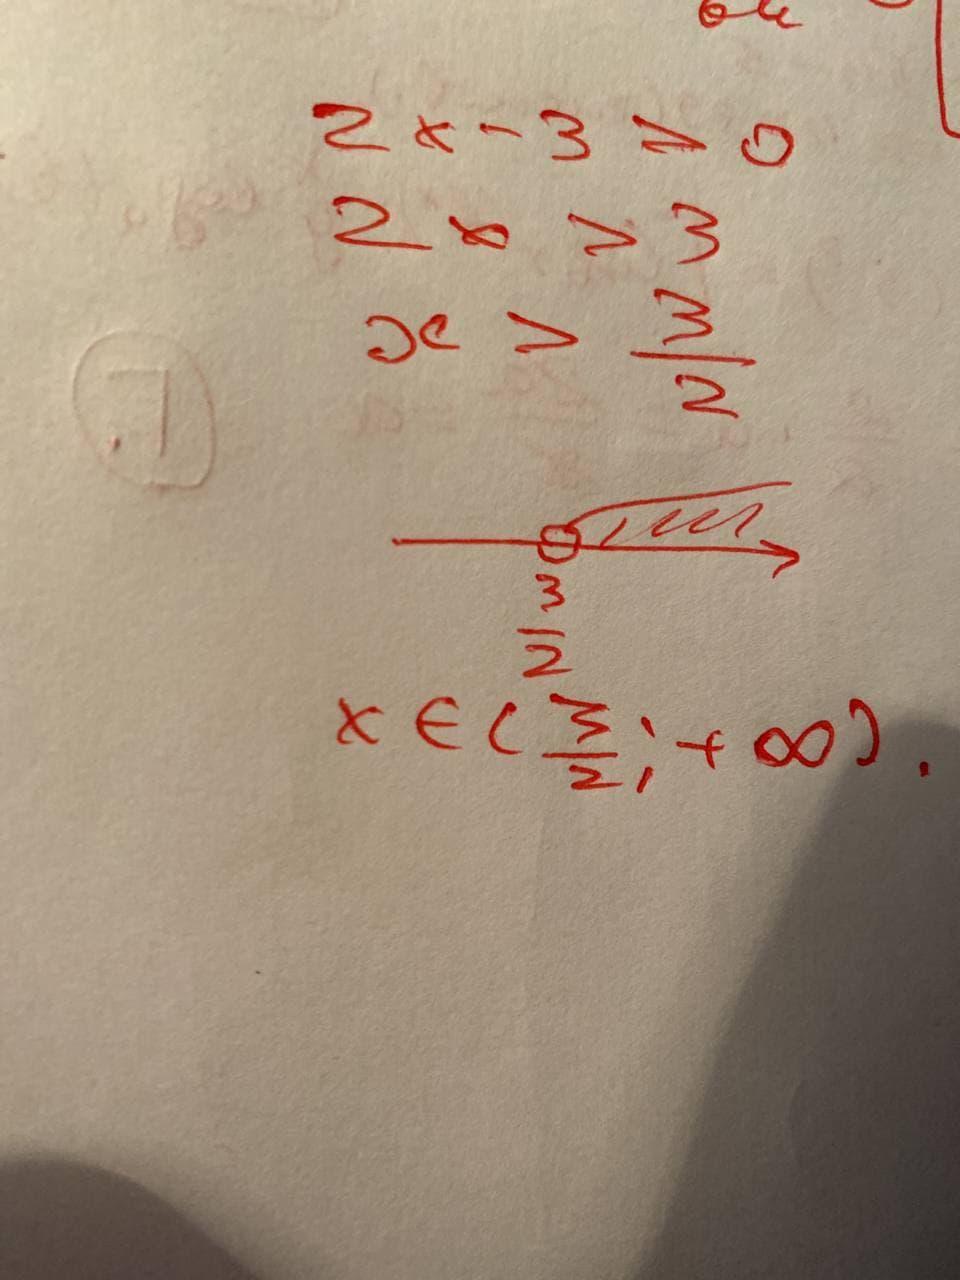 2x-3>0
2x>3
x>3/2
3/2
x∈(3/2;+∞).